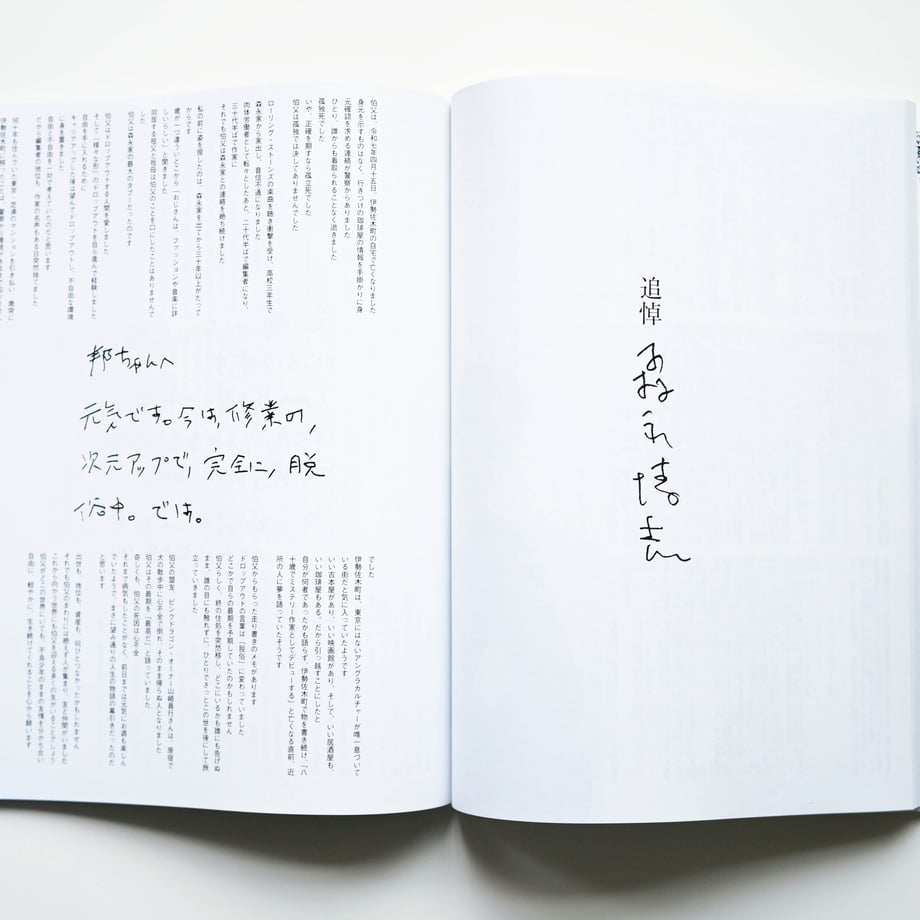 追悼
森永博志
伯父は、令和七年四月十五日、伊勢佐木町の自宅で亡くなりました
身元を示すものはなく、行きつけの珈琲屋の情報を手掛かりに身
元確認を求める連絡が警察からありました
ひとり、誰からも看取られることなく逝きました
孤独死でした
いや、正確を期すなら孤立死でした
伯父は孤独では決してありませんでした
ローリング・ストーンズの楽曲を聴き衝撃を受け、高校三年生で
森永家から家出し、音信不通になりました
肉体労働者として転々としたあと、二十代半ばで編集者になり、
三十代半ばで作家に
それでも伯父は森永家との連絡を絶ち続けました
私の前に姿を現したのは、森永家を出てから三十年以上がたって
からです
歳が一つ違ういとこから「おじさんは、ファッションや音楽に詳
しいらしい」と聞きました
同居する祖父と祖母は伯父のことを口にしたことはありませんで
した
伯父は森永家の最大のタブーだったのです
伯父はドロップアウトする人間を愛しました
そして「様々な形」のドロップアウトを自ら進んで経験しました
自由を手に入れるために
キャリアアップした後は望んでドロップアウトし、不自由な環境
に身を置きました
自由と不自由を一対で考えていたのだと思います
だから編集者の地位も、作家の名声もある日突然捨てました
何十年も住んでいた東京・芝浦のマンションを引き払い、唐突に
伊勢佐木町に移ったことは、警察から連絡があるまで知りません
邦ちゃんへ
元気です。今は、修業の、
次元アップで、完全に、脱
俗中。では。
でした
伊勢佐木町は、東京にはないアングラカルチャーが唯一息づいて
いる街だと気に入っていたようです
いい古本屋があり、いい映画館があり、そして、いい居酒屋も、
いい珈琲屋もある。だから引っ越すことにしたと
自分が何者であったかも語らず、伊勢佐木町で物を書き続け、「八
十歳でミステリー作家としてデビューする」と亡くなる直前、近
所の人に夢を語っていたそうです
伯父からもらった走り書きのメモがあります
ドロップアウトの言葉は「脱俗」に変わっていました
どこかで自らの最期を予期していたのかもしれません
伯父らしく、終の住処を突然移し、どこにいるかも誰にも告げぬ
まま、誰の目にも触れずに、ひとりでさっとこの世を後にして旅
立っていきました
伯父の盟友、ピンクドラゴン・オーナー山崎眞行さんは、原宿で
犬の散歩中に心不全で倒れ、そのまま帰らぬ人となりました
伯父はその最期を「最高だ」と語っていました
奇しくも、伯父の死因は心不全
それまで病気もしたことがなく、前日までは元気にお酒も楽しん
でいたようで、まさに望み通りの人生の物語の幕引きだったのだ
と思います
出世も、地位も、資産も、何ひとつなかったかもしれません
それでも伯父のまわりには絶えず人が集まり、友と仲間がいました
これから向かう世界にも伯父を迎える多くの友がいることでしょう
伯父がどこの世界にいても、不良少年のままの友情を分かち合い
自由に、軽やかに、生き続けてくれることを心から願います